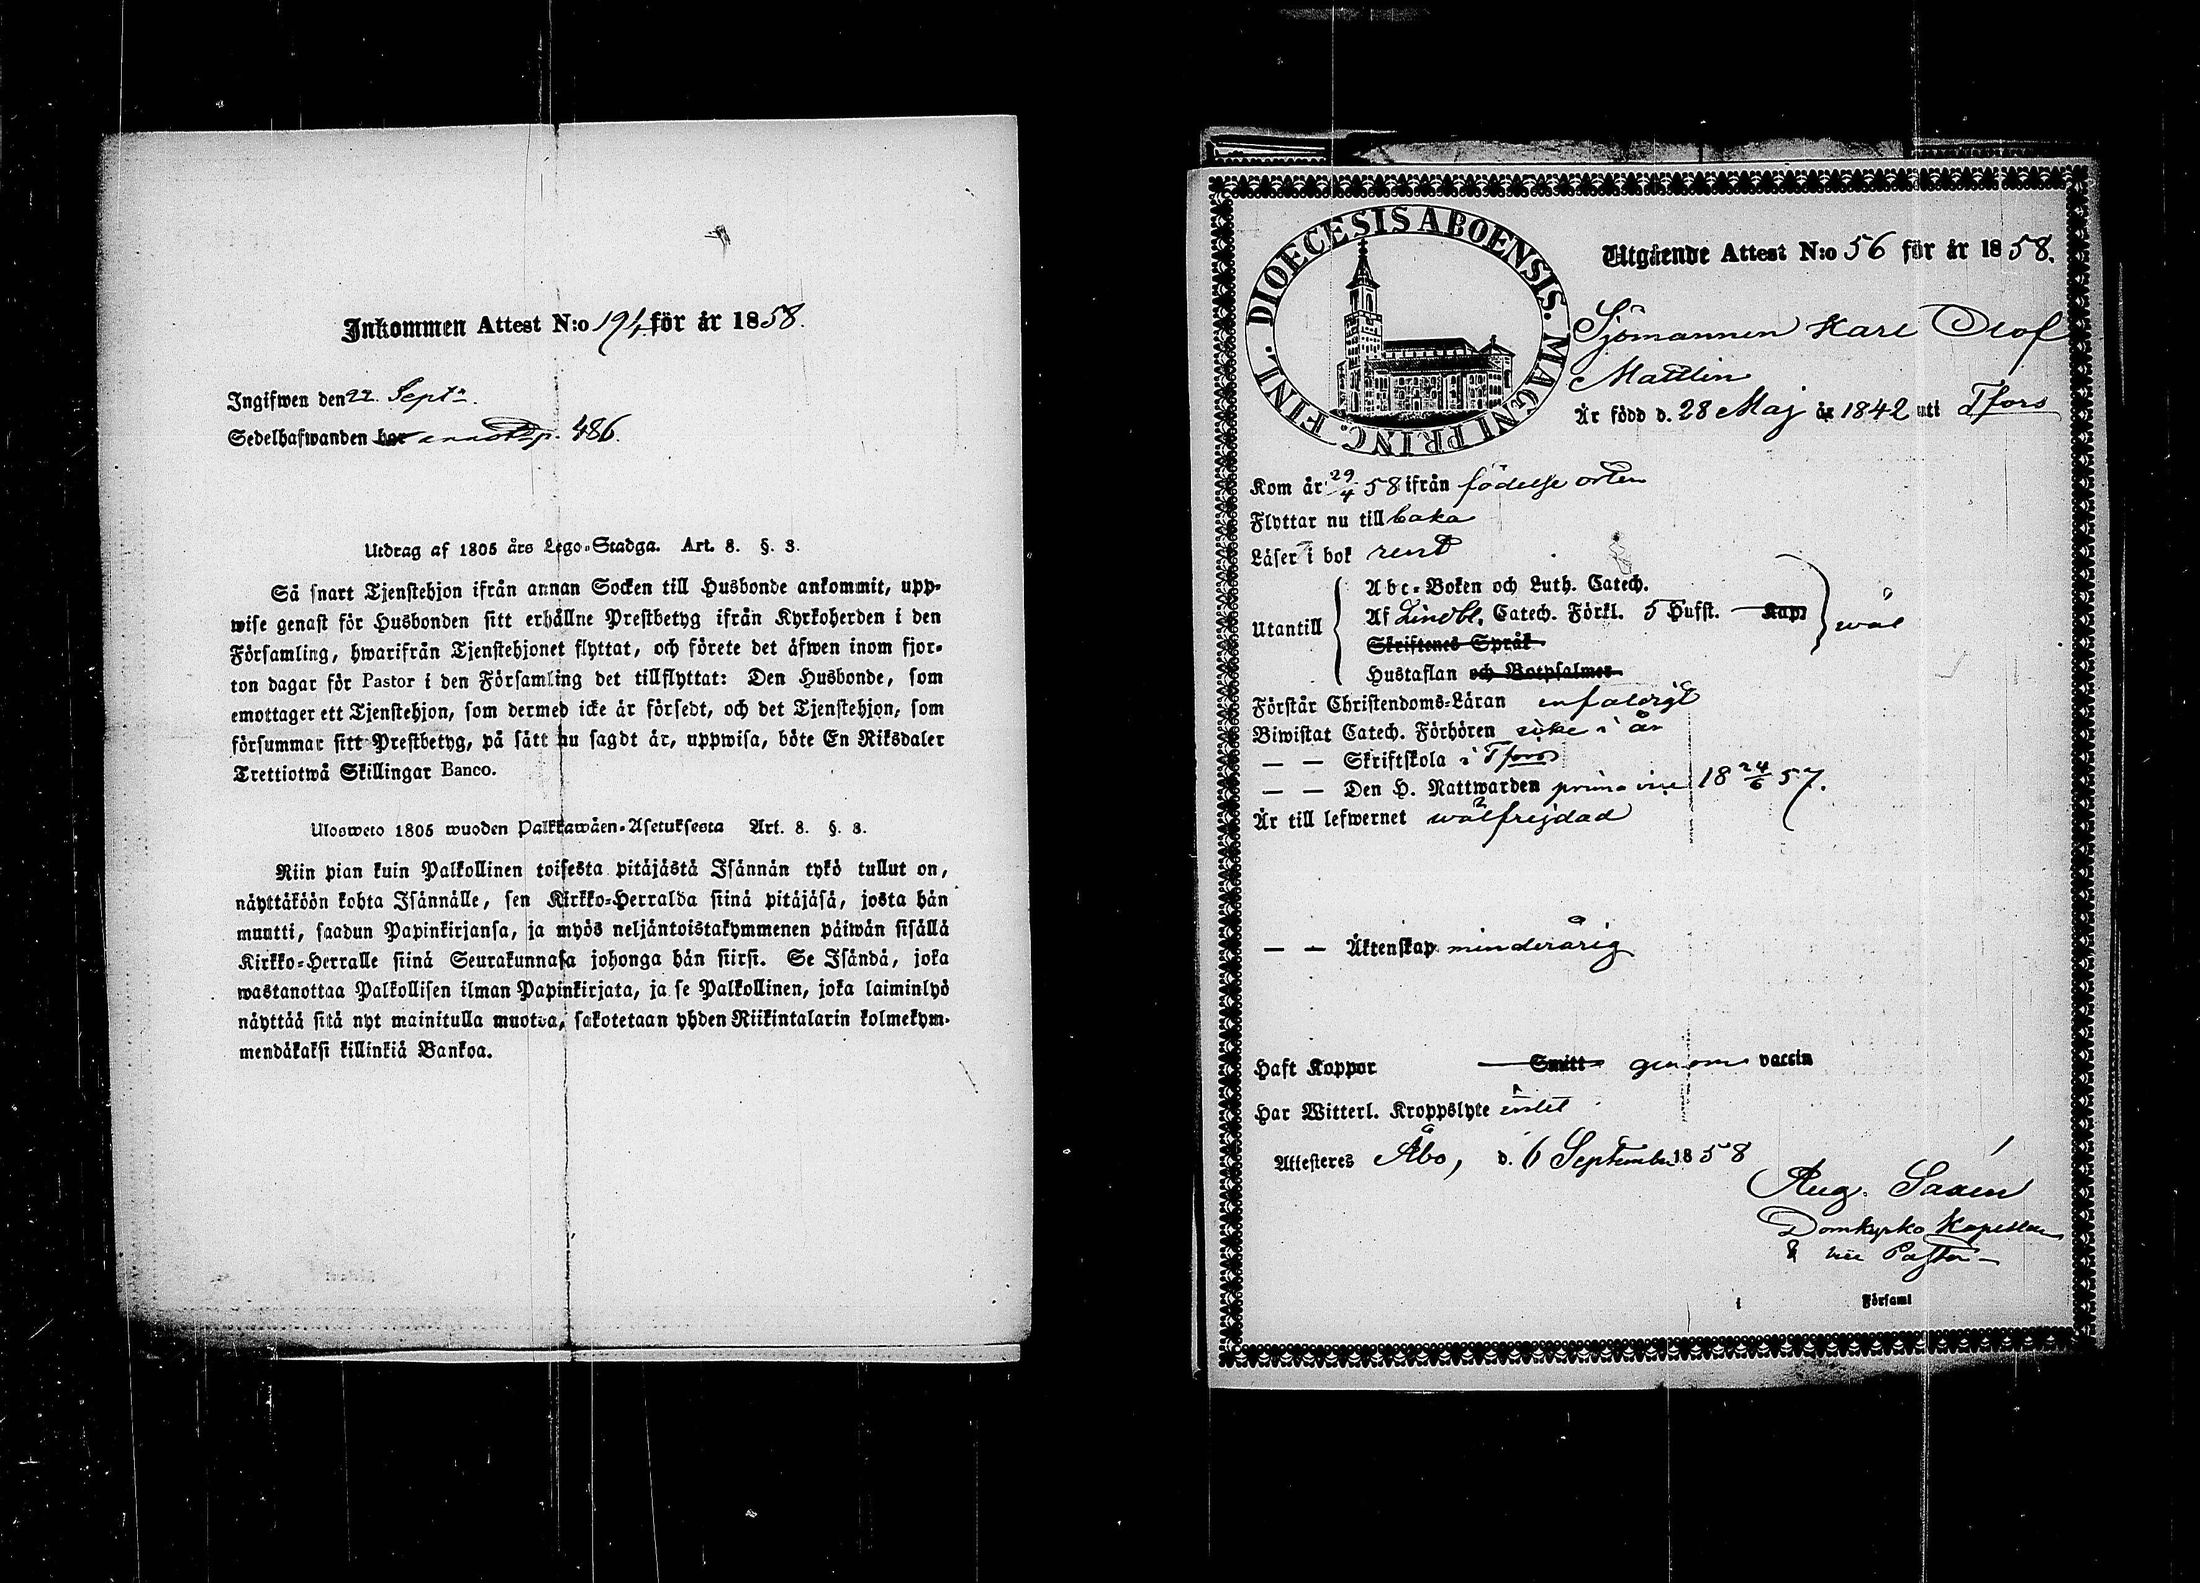 Inkommen Attest N:o 194 för år 1858.
Ingifwen den 22 Sept.
Sedelhafwanden har annot. p. 486.
Utdrag af 1805 års Lego-Stadga. Art. 8. §. 3.
Så snart Tjenstehjon ifrån annan Socken till Husbonde ankommit, upp-
wise genast för Husbonden sitt erhållne Prestbetyg ifrån Kyrkoherden i den
Församling, hwarifrån Tjenstehjonet flyttat, och förete det äfwen inom fjor-
ton dagar för Pastor i den Församling det tillflyttat: Den Husbonde, som
emottager ett Tjenstehjon, som dermed icke är försedt, och det Tjenstehjon, som
försummar sitt Prestbetyg, på sätt nu sagdt är, uppwisa, böte En Riksdaler
Trettiotwå Skillingar Banco.
Ulosweto 1805 wuoden Palkkawäen-Asetuksesta Art. 8. §. 3.
Niin pian kuin Palkollinen toisesta pitäjästä Isännän tykö tullut on,
näyttäköön kohta Isännälle, sen Kirkko-Herralda siinä pitäjäsä, josta hän
muutti, saadun Papinkirjansa, ja myös neljäntoistakymmenen päiwän sisällä
Kirkko-Herralle siinä Seurakunnasa johonga hän siirsi. Se Isändä, joka
wastanottaa Palkollisen ilman Papinkirjata, ja se Palkollinen, joka laiminlyö
näyttää sitä nyt mainitulla muotoa, sakotetaan yhden Riikintalarin kolmekym-
mendäkaksi killinkiä Bankoa.
DIOECESIS ABOENSIS. MAGNI PRINC. FINL.
Utgående Attest N:o 56 för år 1858.
Sjömannen Karl Olof
Mattlin
Är född d. 28 Maj år 1842 uti Tfors
Kom år 29/4 58 ifrån födelse orten
Flyttar nu till baka
Läser i bok rent
Utantill
Abc-Boken och Luth. Catech.
Af Lindbl. Catech. Förkl. 5 Hufst. Kap.
Skriftenes Språk
Hustaflan och Botpsalmer
wäl
Förstår Christendoms-Läran enfaldigt
Biwistat Catech. Förhören icke i år
— — Skriftskola i Tfors
— — Den H. Nattwarden prima vice 18 24/6 57.
Är till lefwernet wälfrejdad
— — Äktenskap minderårig
Haft Koppor Smitt genom vaccin
Har Witterl. Kroppslyte intet
Attesteres Åbo, d. 6 September 1858
Aug. Saxén
Domkyrko Kapellan
& vice Pastor
i Församl